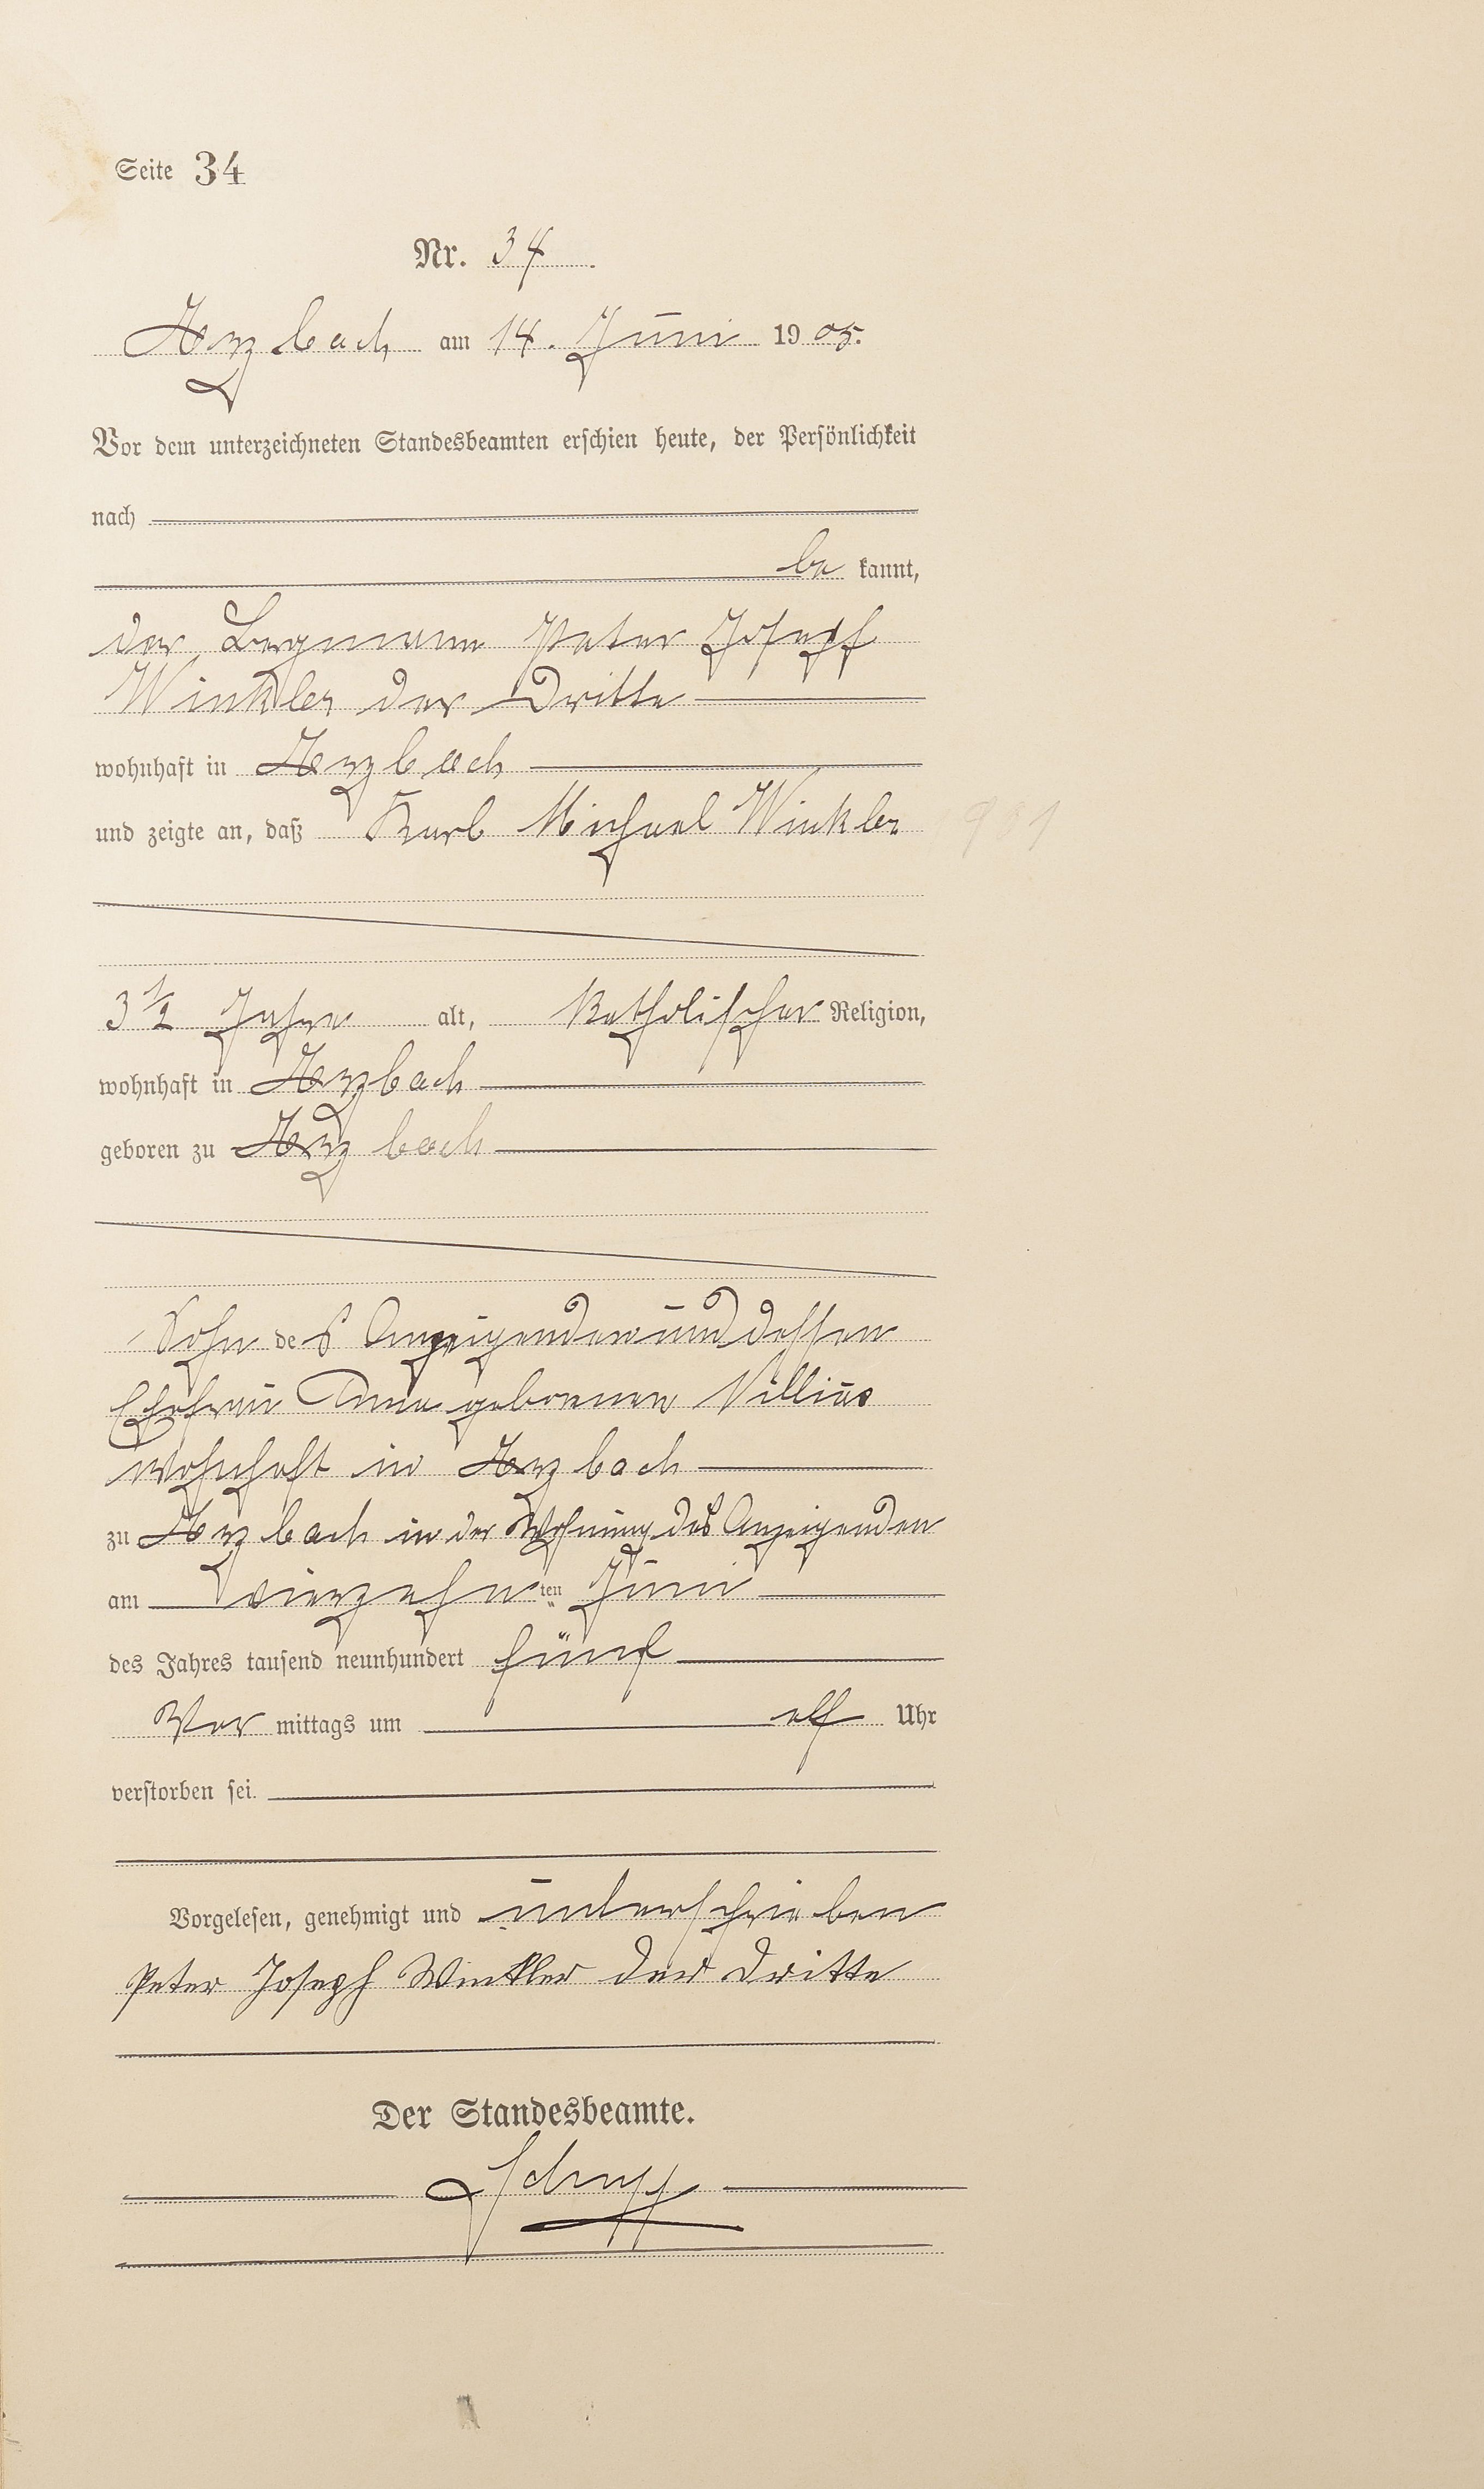 Seite 34
Nr. 34
Arzbach am 14. Juni 1905.
Vor dem unterzeichneten Standesbeamten erschien heute, der Persönlichkeit
nach
be kannt,
der Bergmann Peter Josepf
Winkler der Dritte
wohnhaft in Arzbach
und zeigte an, daß Karl Michael Winkler
3 1/2 Jahre alt, katholischer Religion,
wohnhaft in Arzbach
geboren zu Arzbach
Sohn des Anzeigenden und dessen
Ehefrau Anna geborenen Nillius
wohnhaft in Arzbach
zu Arzbach in der Wohnung des Anzeigenden
am vierzehnten Juni
des Jahres tausend neunhundert fünf
Vor mittags um elf Uhr
verstorben sei.
Vorgelesen, genehmigt und unterschrieben
Peter Joseph Winkler der Dritte
Der Standesbeamte.
Schupp